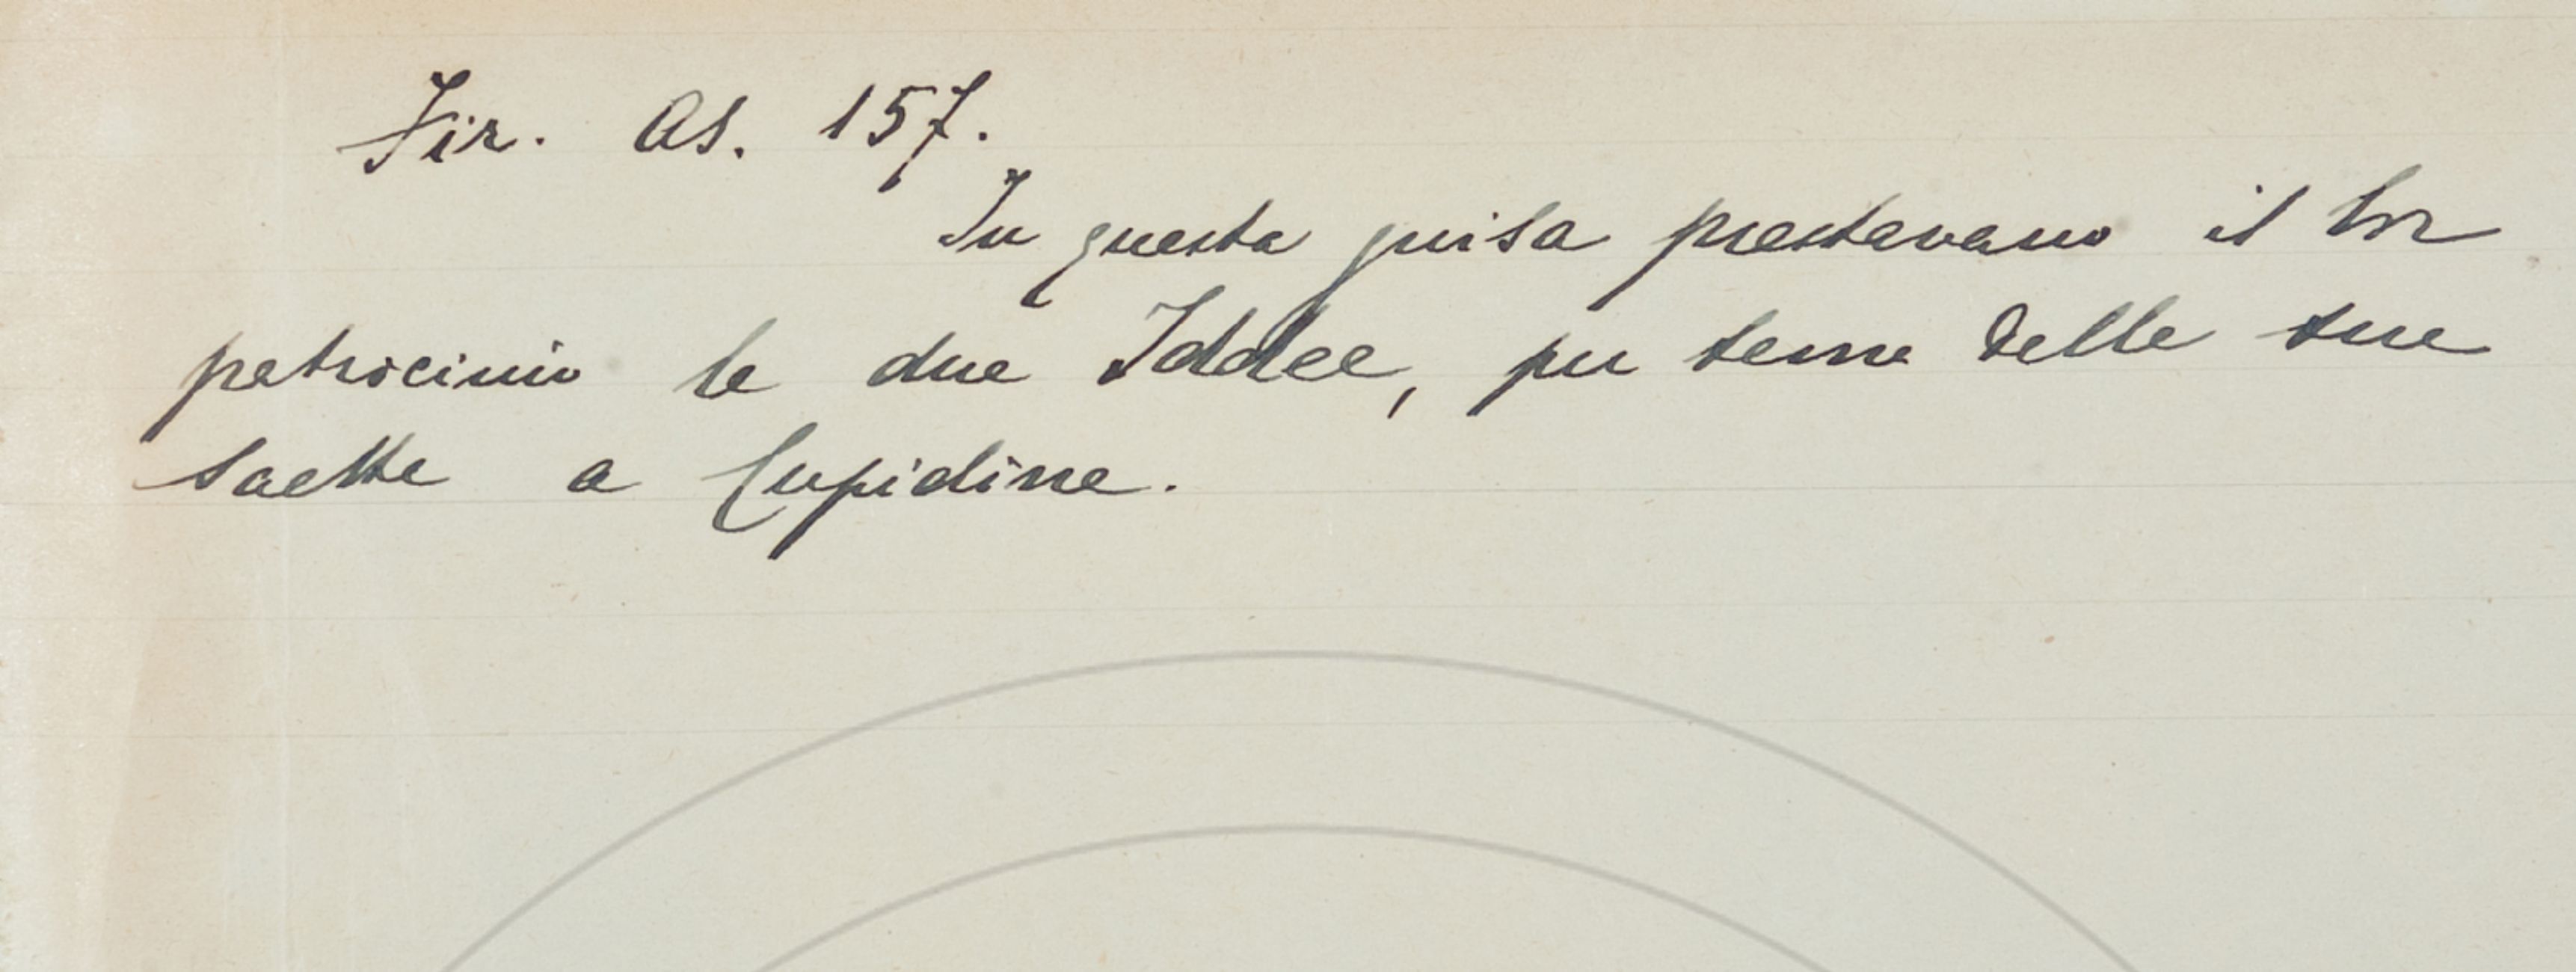 Fir. As. 157.
In questa guisa prestavano il lor
patrocinio le due Iddee, per tema delle sue
saette a Cupidine.